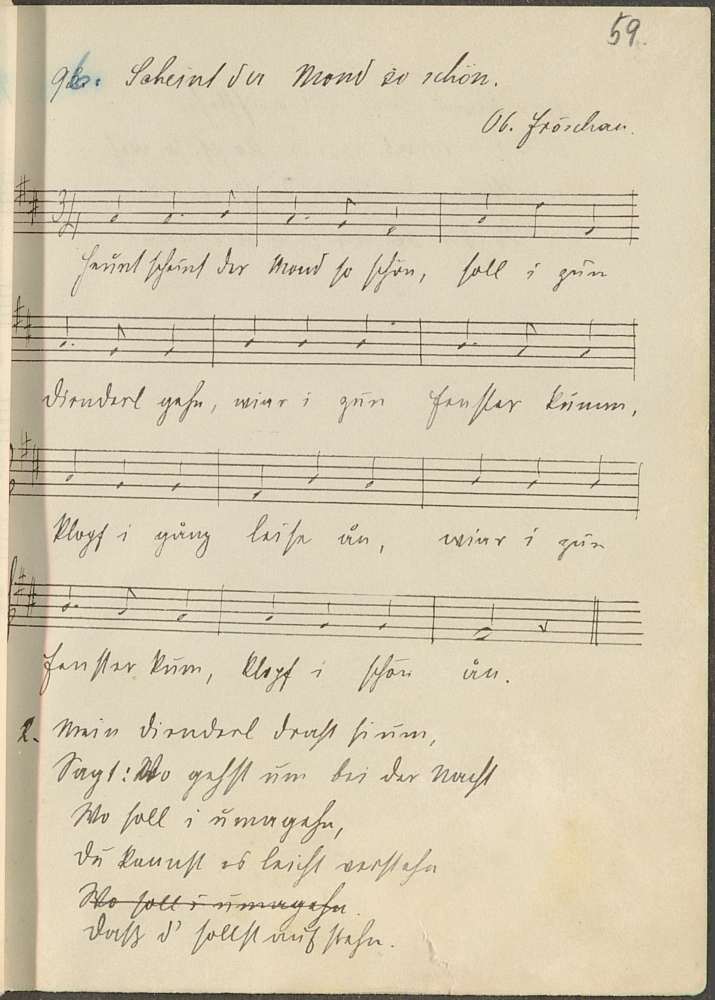 59.
96. Scheint der Mond so schön.
Ob. Fröschau.
3/4
Heunt scheint der Mond so schön, soll i zun
Dienderl gehn, wiar i zun Fenster kumm,
klopf i gånz leise ån, wiar i zun
Fenster kum, klopf i schön ån.
2. Mein Dienderl draht si um,
Sagt: Wo gehst um bei der Nacht
Wo soll i umagehn,
Du kannst es leicht verstehn
Wo soll i umagehn.
Dasz d' sollst aufstehn.